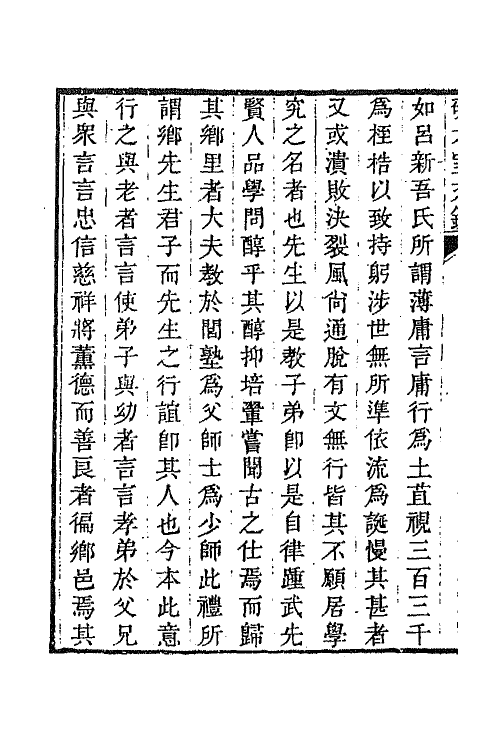 如呂新吾氏所謂薄庸言庸行爲土苴視三百三千
爲桎梏以致持躬涉世無所準依流爲誕慢其甚者
又或潰敗決裂風尙通脫有文無行皆其不願居學
究之名者也先生以是敎子弟卽以是自律踵武先
賢人品學問醇乎其醇抑培翬嘗聞古之仕焉而歸
其鄉里者大夫敎於閭塾爲父師士爲少師此禮所
謂鄉先生君子而先生之行誼卽其人也今本此意
行之與老者言言使弟子與幼者言言孝弟於父兄
與衆言言忠信慈祥將薰德而善良者徧鄉邑焉其